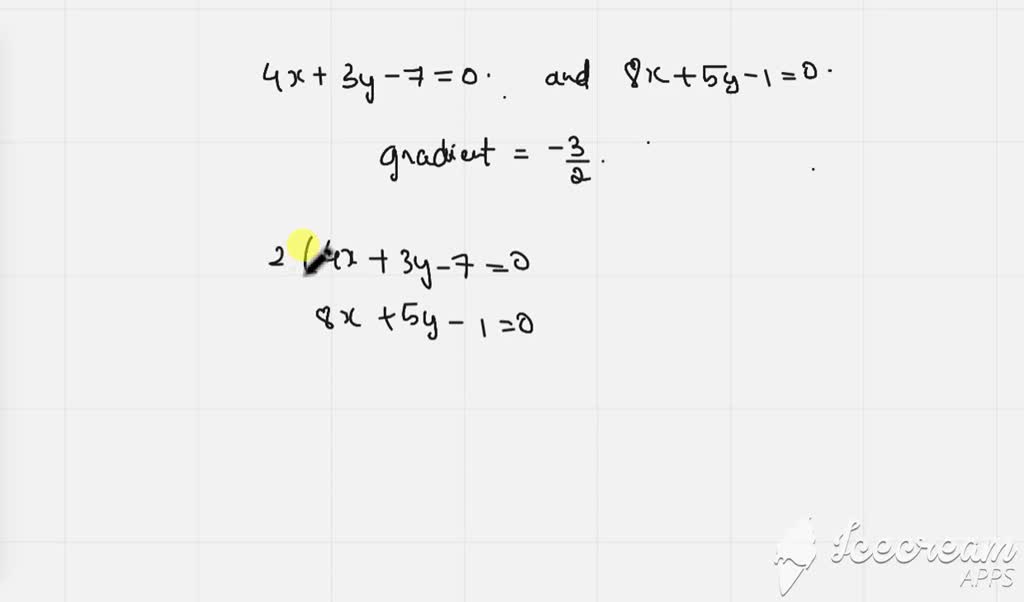 4x + 3y - 7 = 0. and 8x + 5y - 1 = 0.
gradient = -3/2.
2 (4x + 3y - 7 = 0
8x + 5y - 1 = 0
Icecream
APPS